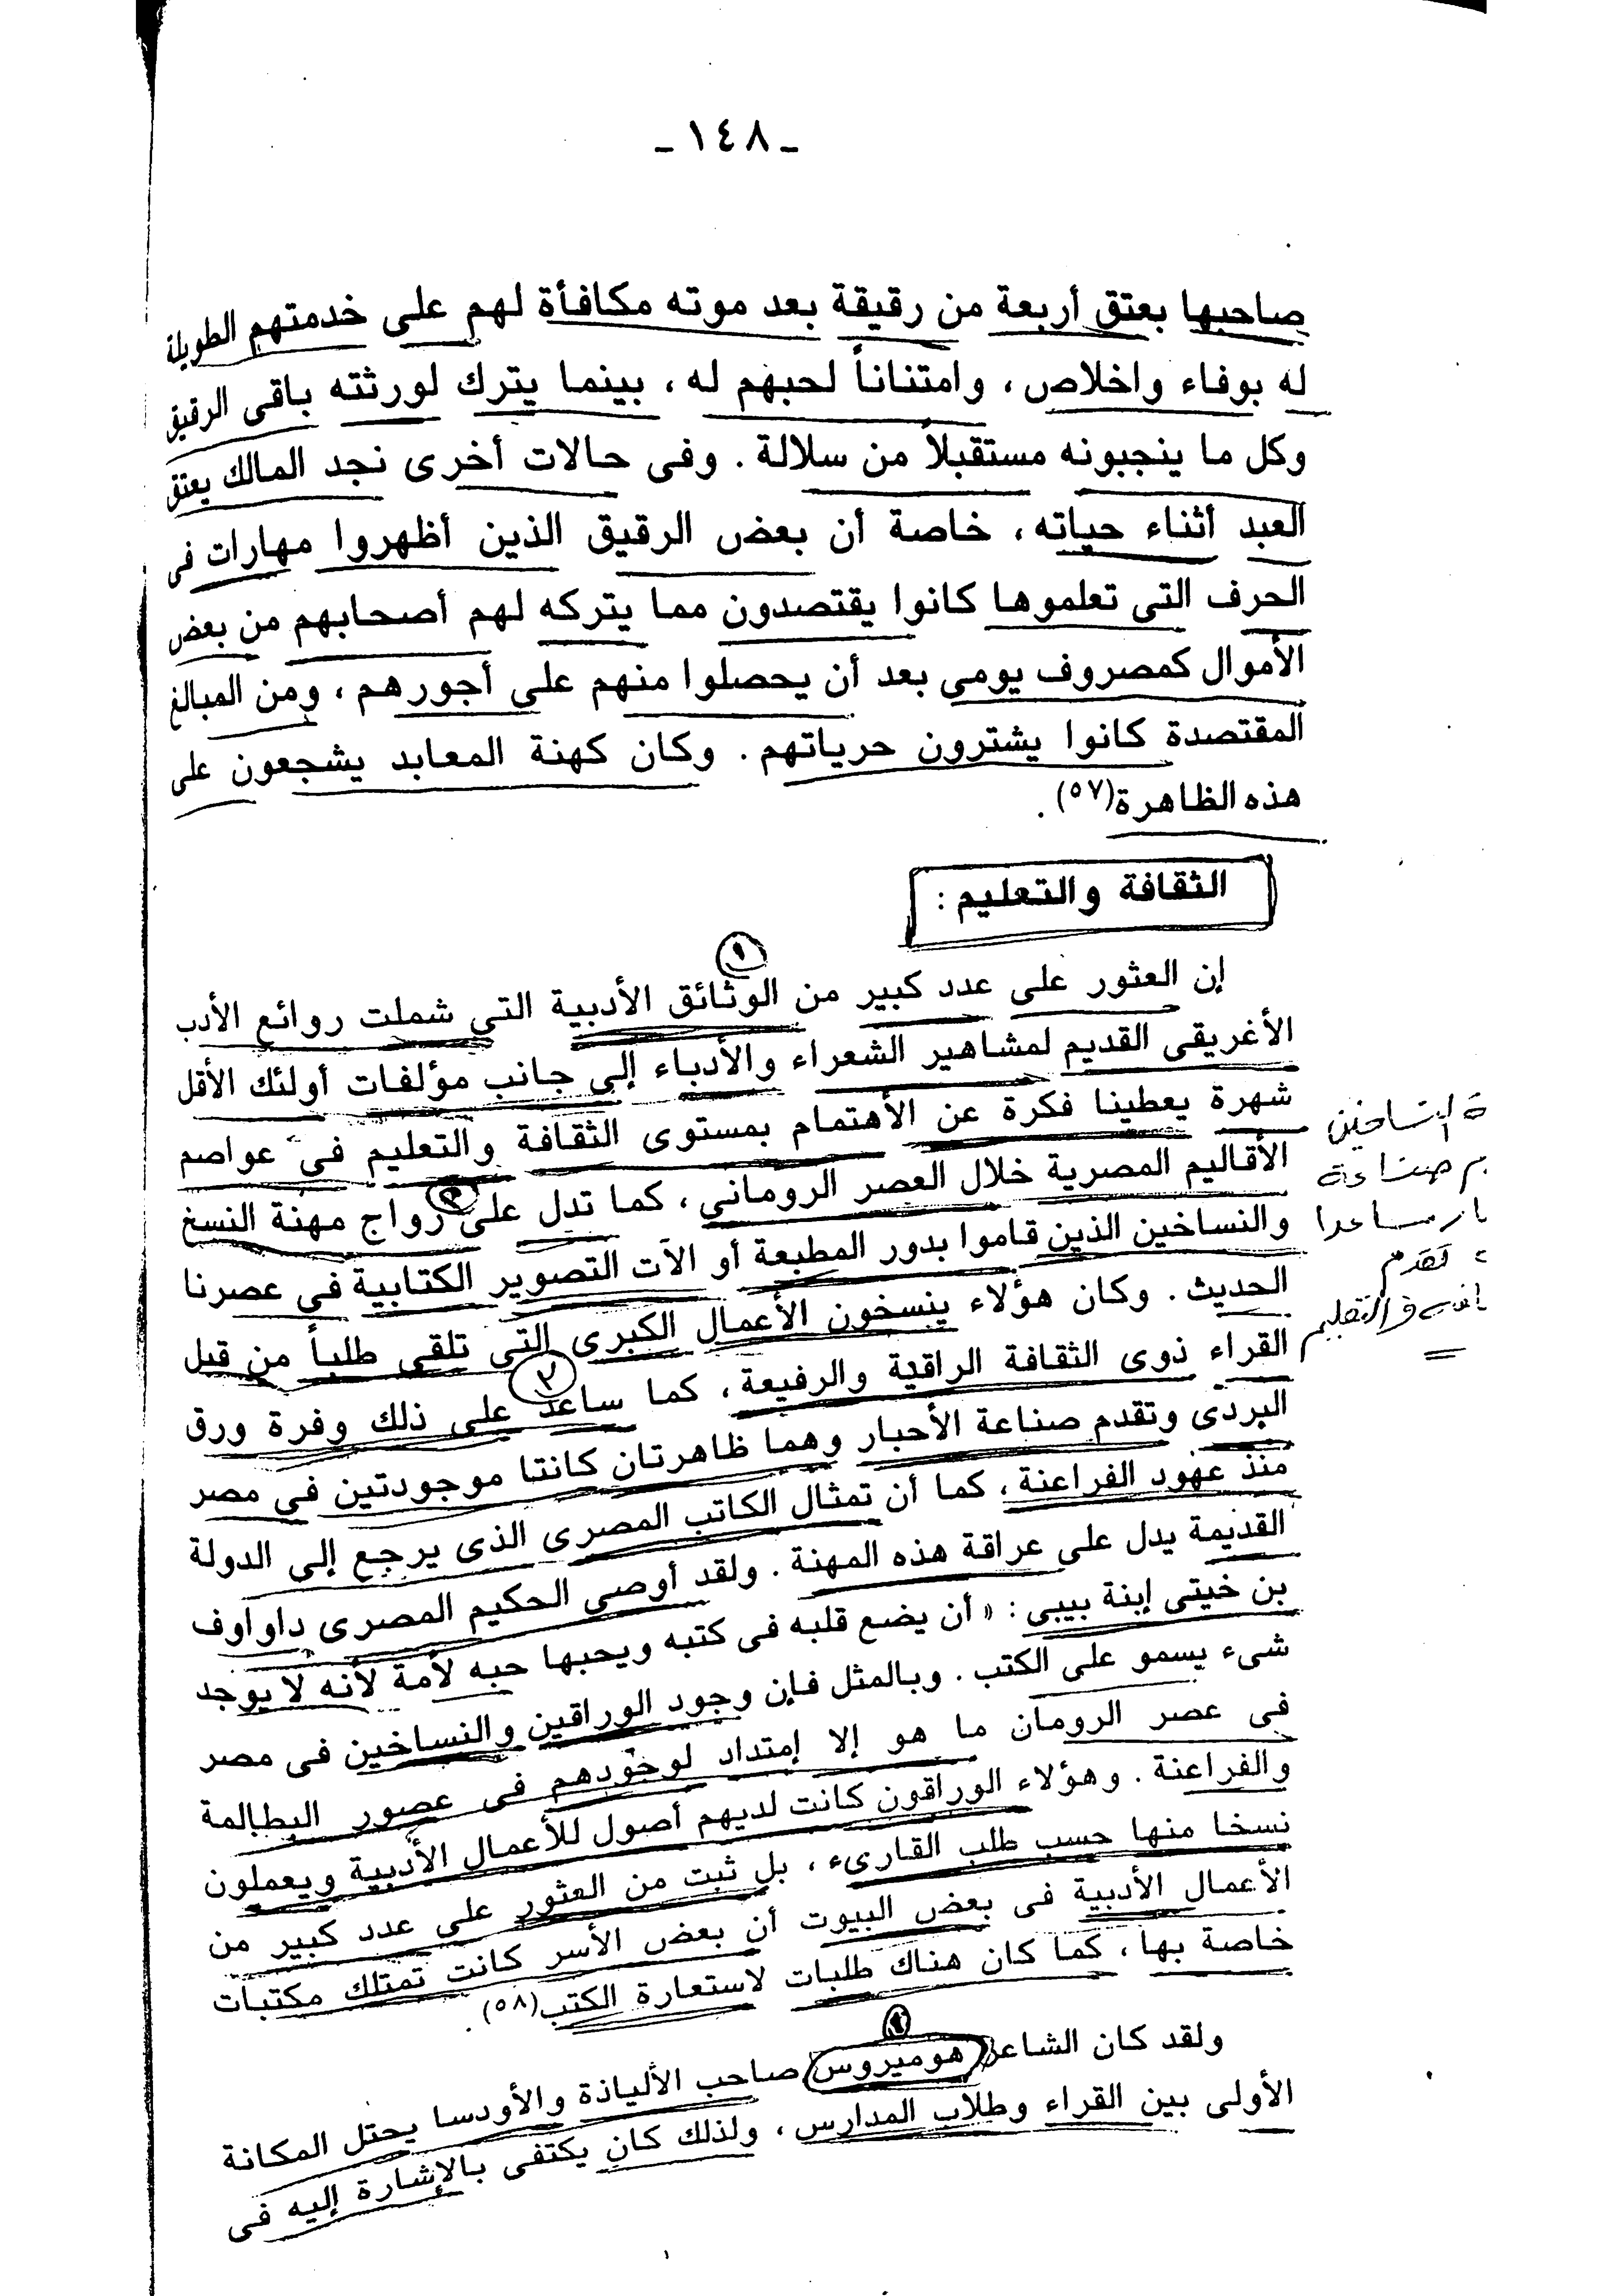 ـ ١٤٨ ـ
صاحبها بعتق أربعة من رقيقة بعد موته مكافأة لهم على خدمتهم الطويلة
له بوفاء واخلاص ، وامتناناً لحبهم له ، بينما يترك لورثته باقى الرقيق
وكل ما ينجبونه مستقبلاً من سلالة . وفى حالات أخرى نجد المالك يعتق
العبد أثناء حياته ، خاصة أن بعض الرقيق الذين أظهروا مهارات فى
الحرف التى تعلموها كانوا يقتصدون مما يتركه لهم أصحابهم من بعض
الأموال كمصروف يومى بعد أن يحصلوا منهم على أجورهم ، ومن المبالغ
المقتصدة كانوا يشترون حرياتهم . وكان كهنة المعابد يشجعون على
هذه الظاهرة(٥٧) .
الثقافة والتعليم :
١
إن العثور على عدد كبير من الوثائق الأدبية التي شملت روائع الأدب
الأغريقى القديم لمشاهير الشعراء والأدباء إلى جانب مؤلفات أولئك الأقل
شهرة يعطينا فكرة عن الأهتمام بمستوى الثقافة والتعليم في عواصم
الأقاليم المصرية خلال العصر الروماني ، كما تدل على رواج مهنة النسخ
والنساخين الذين قاموا بدور المطبعة أو الآت التصوير الكتابية في عصرنا
الحديث . وكان هؤلاء ينسخون الأعمال الكبرى التي تلقى طلباً من قبل
القراء ذوى الثقافة الراقية والرفيعة ، كما ساعد على ذلك وفرة ورق
البردى وتقدم صناعة الأحبار وهما ظاهرتان كانتا موجودتين في مصر
منذ عهود الفراعنة ، كما أن تمثال الكاتب المصرى الذى يرجع إلى الدولة
القديمة يدل على عراقة هذه المهنة . ولقد أوصى الحكيم المصرى داواوف
بن خيتى إبنة بيبى : « أن يضع قلبه فى كتبه ويحبها حبه لأمة لأنه لا يوجد
شىء يسمو على الكتب . وبالمثل فإن وجود الوراقين والنساخين فى مصر
فى عصر الرومان ما هو إلا إمتداد لوجودهم فى عصور البطالمة
والفراعنة . وهؤلاء الوراقون كانت لديهم أصول للأعمال الأدبية ويعملون
نسخا منها حسب طلب القارىء ، بل ثبت من العثور على عدد كبير من
الأعمال الأدبية فى بعض البيوت أن بعض الأسر كانت تمتلك مكتبات
خاصة بها ، كما كان هناك طلبات لاستعارة الكتب(٥٨) .
ولقد كان الشاعر هوميروس صاحب الألياذة والأودسا يحتل المكانة
الأولى بين القراء وطلاب المدارس ، ولذلك كان يكتفى بالإشارة إليه فى
ة النساخين
صناعة
ساعدا
تقدم
والتعليم